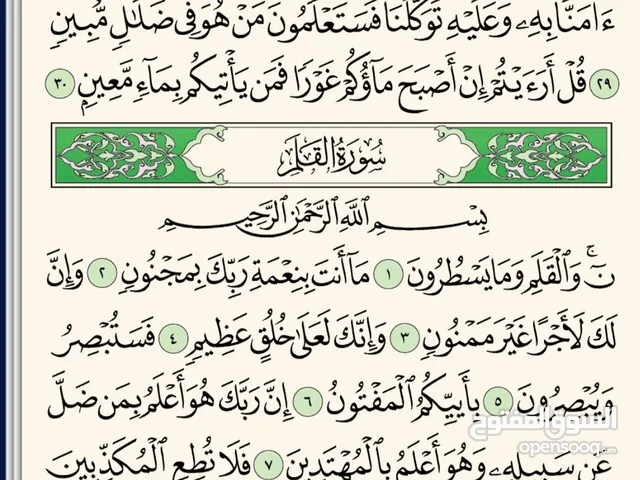 ءَامَنَّا بِهِۦ وَعَلَيْهِ تَوَكَّلْنَا فَسَتَعْلَمُونَ مَنْ هُوَ فِى ضَلَٰلٍ مُّبِينٍ
٢٩ قُلْ أَرَءَيْتُمْ إِنْ أَصْبَحَ مَآؤُكُمْ غَوْرًا فَمَن يَأْتِيكُم بِمَآءٍ مَّعِينٍ ٣٠
سُورَةُ القَلَمِ
بِسْمِ ٱللَّهِ ٱلرَّحْمَٰنِ ٱلرَّحِيمِ
نٓ ۚ وَٱلْقَلَمِ وَمَا يَسْطُرُونَ ١ مَآ أَنتَ بِنِعْمَةِ رَبِّكَ بِمَجْنُونٍ ٢ وَإِنَّ
لَكَ لَأَجْرًا غَيْرَ مَمْنُونٍ ٣ وَإِنَّكَ لَعَلَىٰ خُلُقٍ عَظِيمٍ ٤ فَسَتُبْصِرُ
وَيُبْصِرُونَ ٥ بِأَييِّكُمُ ٱلْمَفْتُونُ ٦ إِنَّ رَبَّكَ هُوَ أَعْلَمُ بِمَن ضَلَّ
عَن سَبِيلِهِۦ وَهُوَ أَعْلَمُ بِٱلْمُهْتَدِينَ ٧ فَلَا تُطِعِ ٱلْمُكَذِّبِينَ
السوق المفتوح
opensooq.com